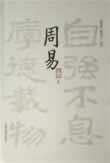 周易
自強不息
厚德載物